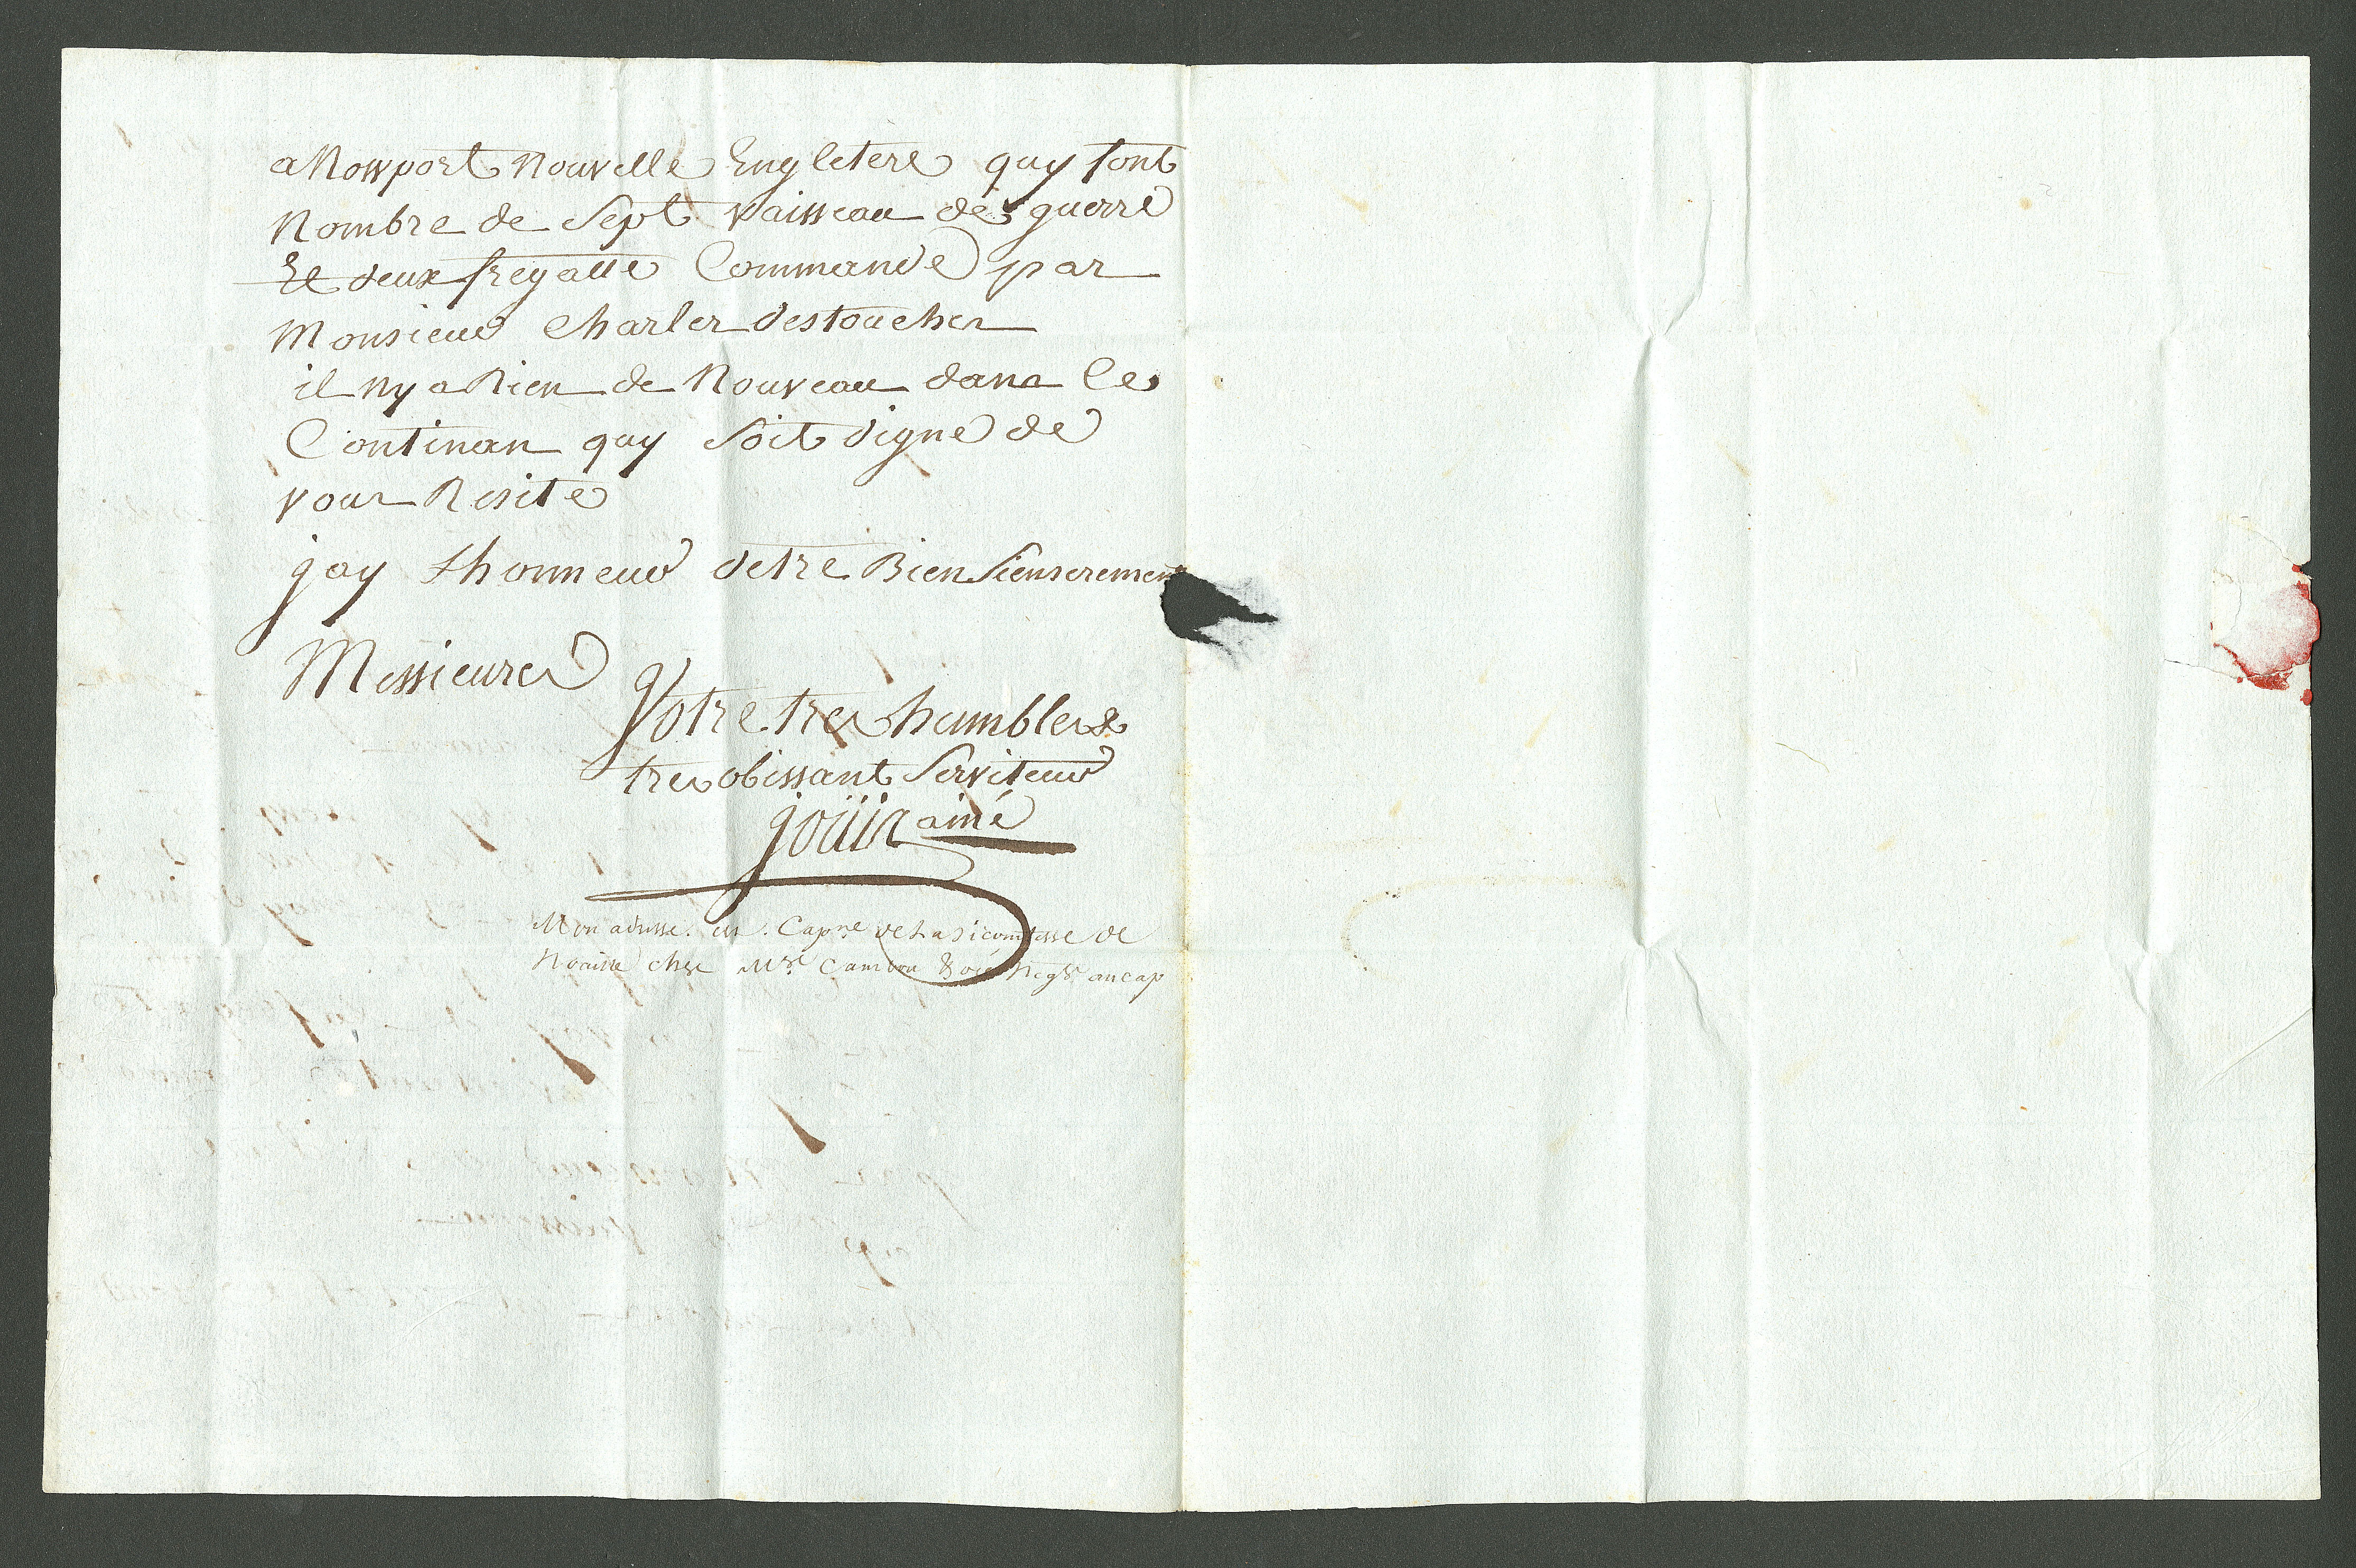 a Nowport Nouvelle Engletere quy font
Nombre de Sept vaisseau de guerre
Et deux fregatte Commande par
Monsieur Charles destouches
il ny a Rien de Nouveau dans le
Continan quy Soit digne de
vous Resite
jay Lhonneur detre Bien Sienserement
Messieures
Votre tres humble &
tres obissant Serviteur
joüin ainé
Mon adresse. est. Capne. de La vicomtesse de
Noaille chez Mrs. Cambon & Negts. au cap